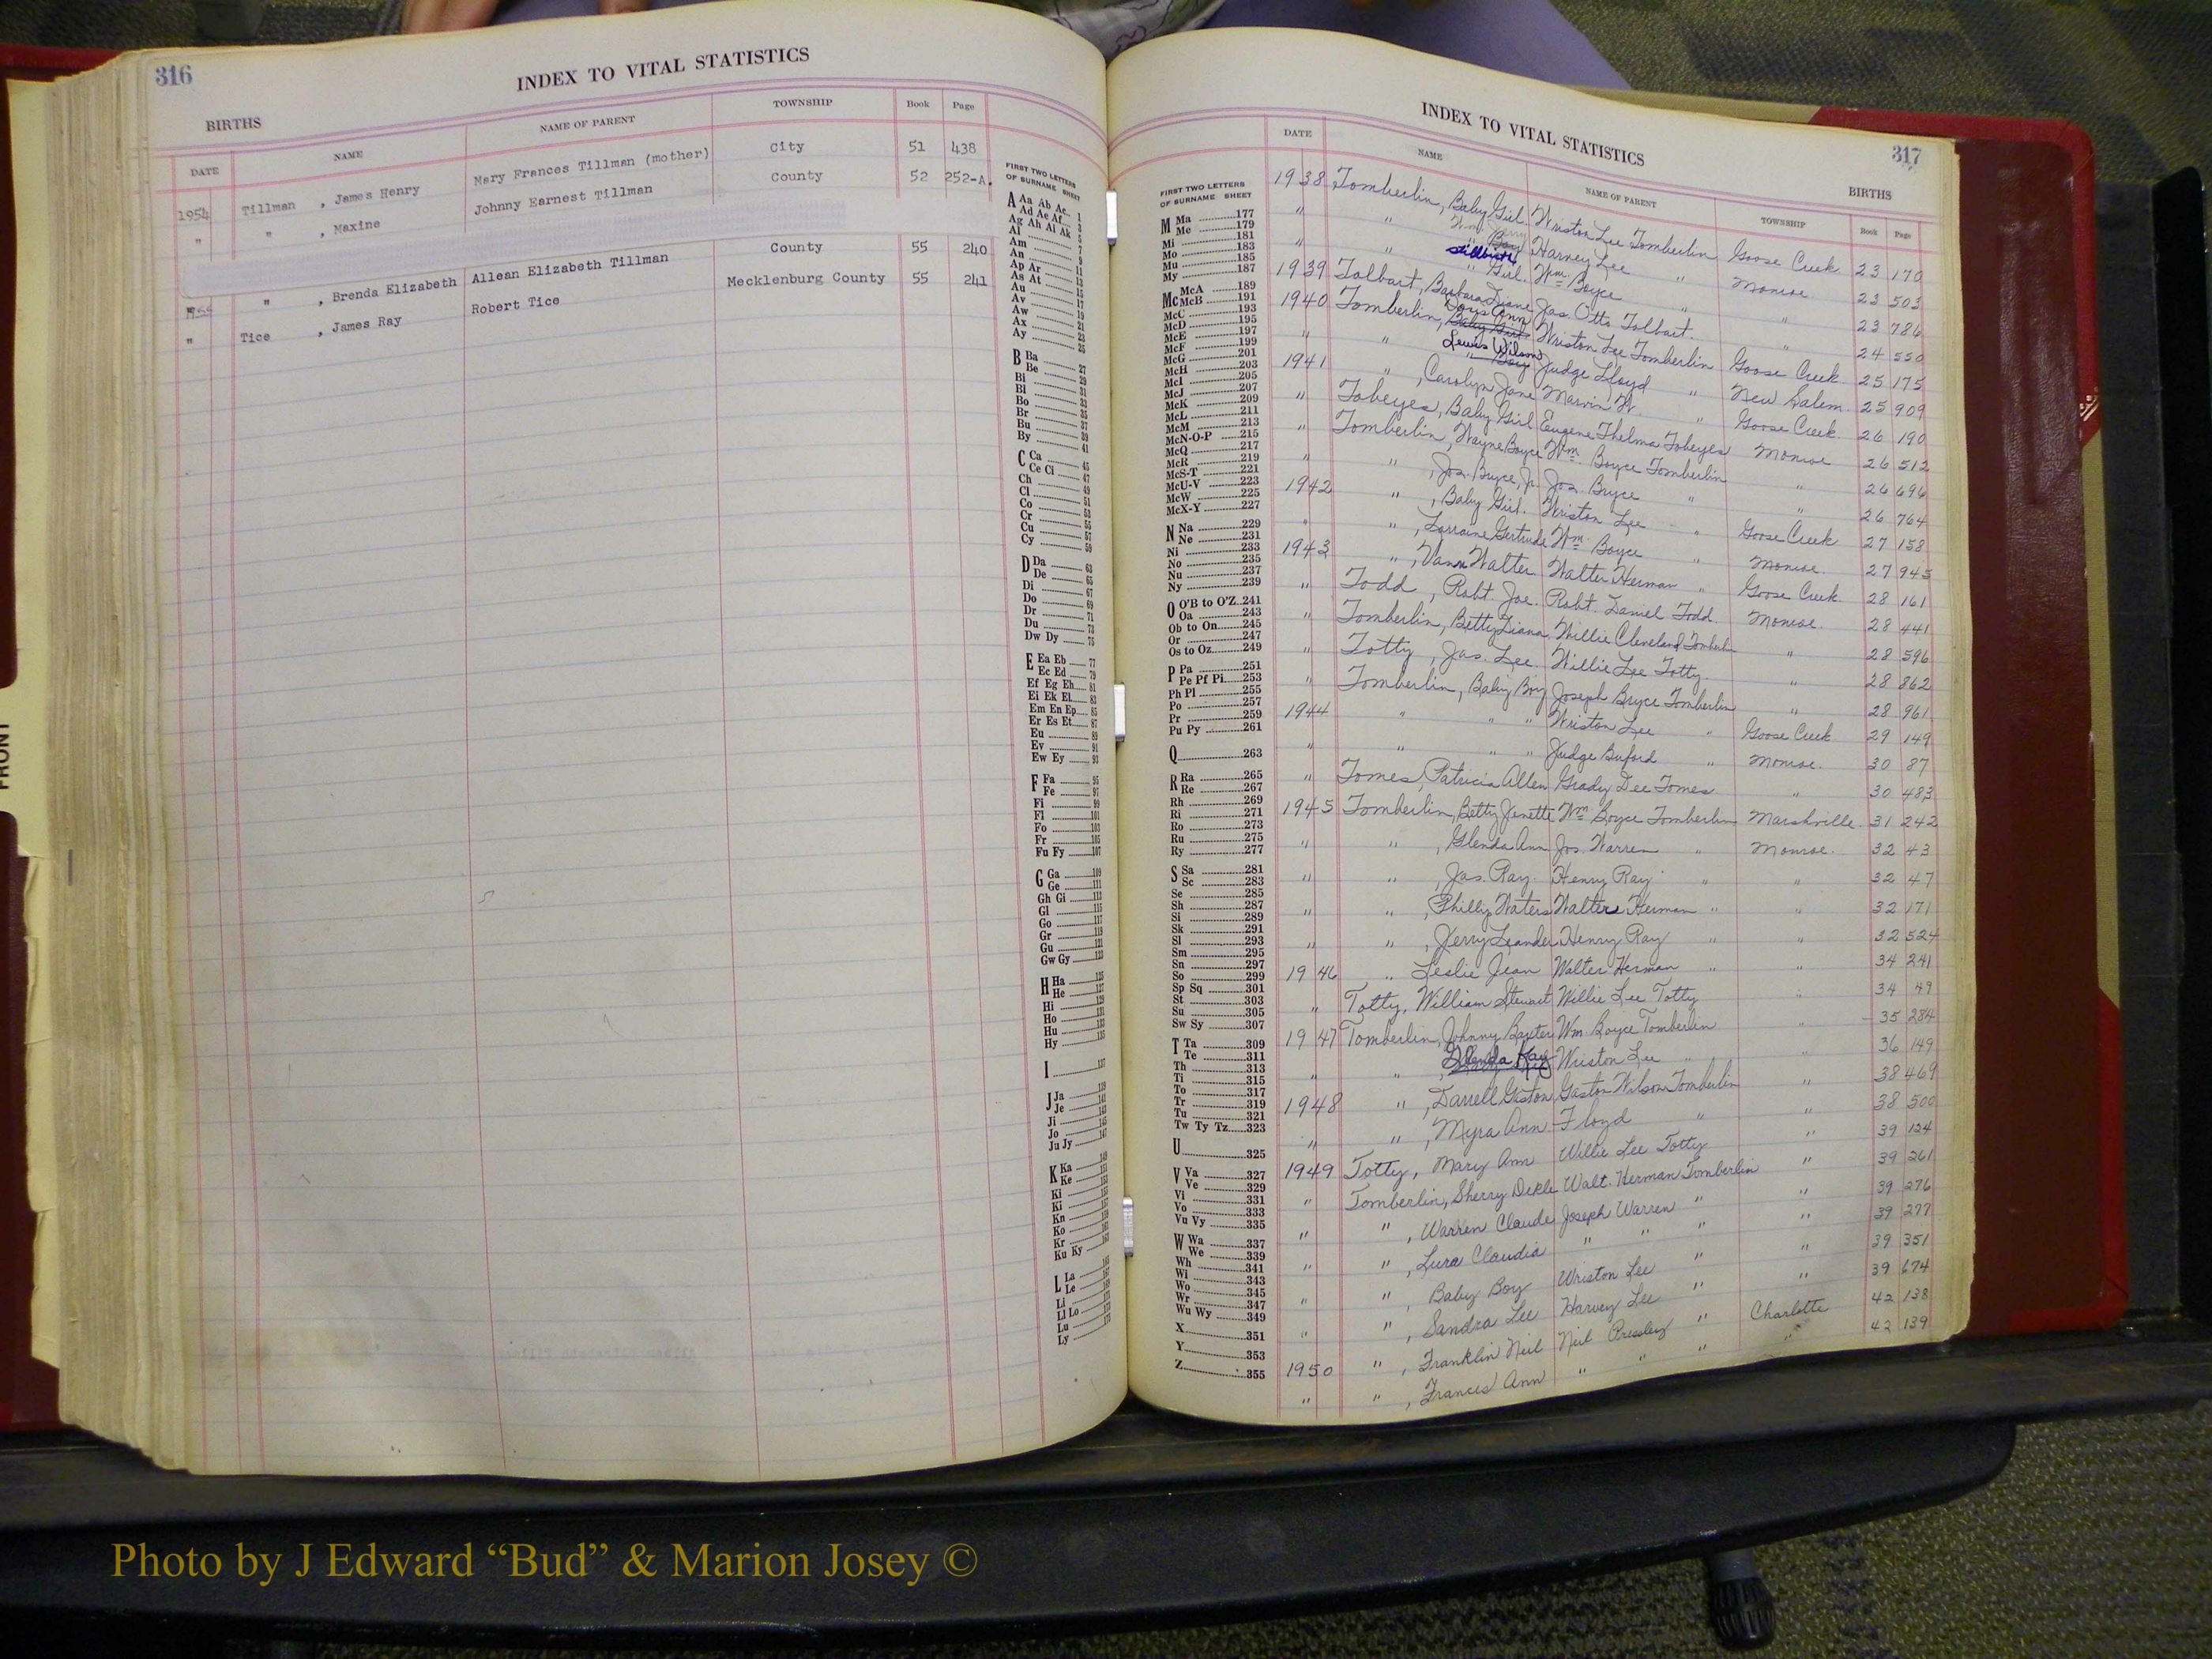 316
INDEX TO VITAL STATISTICS
BIRTHS
DATE NAME NAME OF PARENT TOWNSHIP Book Page
1954 Tillman , James Henry Mary Frances Tillman (mother) City 51 438
" " , Maxine Johnny Earnest Tillman County 52 252-A.
" , Brenda Elizabeth Allean Elizabeth Tillman County 55 240
" Tice , James Ray Robert Tice Mecklenburg County 55 241
FIRST TWO LETTERS
OF SURNAME SHEET
A Aa Ab Ac 1
Ad Ae Af 3
Ag Ah Ai Ak 5
Al
Am 7
An 9
Ap Ar 11
As At 13
Au 15
Av 17
Aw 19
Ax 21
Ay
B Ba 27
Be 29
Bi 31
Bl 33
Bo 35
Br 37
Bu 39
By 41
C Ca 45
Ce Ci 47
Ch 49
Cl 51
Co 53
Cr 55
Cu 57
Cy 59
D Da 63
De 65
Di 67
Do 69
Dr 71
Du 73
Dw Dy 75
E Ea Eb 77
Ec Ed 79
Ef Eg Eh 81
Ei Ek El 83
Em En Ep 85
Er Es Et 87
Eu 89
Ev 91
Ew Ey 93
F Fa 95
Fe 97
Fi 99
Fl 101
Fo 103
Fr 105
Fu Fy 107
G Ga 109
Ge 111
Gh Gi 113
Gl 115
Go 117
Gr 119
Gu 121
Gw Gy 123
H Ha 125
He 127
Hi 129
Ho 131
Hu 133
Hy 135
I 137
J Ja 139
Je 141
Ji 143
Jo 145
Ju Jy 147
K Ka 149
Ke 151
Ki
Ki
Kn
Ko
Kr
Ku Ky
L La
Le
Li
Ll Lo
Lu
Ly
317
INDEX TO VITAL STATISTICS
BIRTHS
DATE NAME NAME OF PARENT TOWNSHIP Book Page
FIRST TWO LETTERS
OF SURNAME SHEET
M Ma 177
Me 179
Mi 181
Mo 183
Mu 185
My 187
Mc McA 189
McB 191
McC 193
McD 195
McE 197
McF 199
McG 201
McH 203
McI 205
McJ 207
McK 209
McL 211
McM 213
McN-O-P 215
McQ 217
McR 219
McS-T 221
McU-V 223
McW 225
McX-Y 227
N Na 229
Ne 231
Ni 233
No 235
Nu 237
Ny 239
O O'B to O'Z 241
Oa 243
Ob to On 245
Or 247
Os to Oz 249
P Pa 251
Pe Pf Pi 253
Ph Pl 255
Po 257
Pr 259
Pu Py 261
Q 263
R Ra 265
Re 267
Rh 269
Ri 271
Ro 273
Ru 275
Ry 277
S Sa 281
Sc 283
Se 285
Sh 287
Si 289
Sk 291
Sl 293
Sm 295
Sn 297
So 299
Sp Sq 301
St 303
Su 305
Sw Sy 307
T Ta 309
Te 311
Th 313
Ti 315
To 317
Tr 319
Tu 321
Tw Ty Tz 323
U 325
V Va 327
Ve 329
Vi 331
Vo 333
Vu Vy 335
W Wa 337
We 339
Wh 341
Wi 343
Wo 345
Wr 347
Wu Wy 349
X 351
Y 353
Z 355
1938 Tomberlin, Baby Girl Wriston Lee Tomberlin Goose Creek 23 170
" " " Boy Harvey Lee " Monroe 23 503
" " stillbirth " Girl. Wm Boyce " " 23 786
1939 Tolbart, Barbara Diane Jas. Otto Tolbart. " 24 550
1940 Tomberlin, Doris Ann Baby Girl Wriston Lee Tomberlin Goose Creek 25 175
" " Lewis Wilson " Boy Judge Lloyd " New Salem 25 909
1941 " , Carolyn Jane Marvin W. " Goose Creek 26 190
" Tobeyes, Baby Girl Eugene Thelma Tobeyes Monroe 26 512
" Tomberlin, Wayne Boyce Wm Boyce Tomberlin " 26 696
" " , Jos. Bryce, Jr. Jos. Bryce " " 26 764
1942 " , Baby Girl. Wriston Lee " Goose Creek 27 158
" " , Lorraine Gertrude Wm Boyce " Monroe. 27 945
1943 " , Vann Walter Walter Herman " Goose Creek 28 161
" Todd , Robt. Joe. Robt. Daniel Todd. Monroe. 28 441
" Tomberlin, Betty Diana Willie Cleveland Tomberlin " 28 596
" Totty , Jas. Lee. Willie Lee Totty. " 28 862
" Tomberlin, Baby Boy Joseph Bryce Tomberlin " 28 961
1944 " " " Wriston Lee " Goose Creek 29 149
" " " " Judge Buford " Monroe. 30 87
" Tomes, Patricia Allen Grady Dee Tomes. " 30 483
1945 Tomberlin, Betty Jenette Wm Boyce Tomberlin Marshville 31 242
" " , Glenda Ann Jos. Warren " Monroe. 32 43
" " , Jas. Ray. Henry Ray " " 32 47
" " , Philly Waters Walter Herman " " 32 171
" " , Jerry Leander Henry Ray " " 32 524
1946 " Leslie Jean Walter Herman " " 34 241
" Totty, William Stewart Willie Lee Totty " 34 49
1947 Tomberlin, Johnny Baxter Wm. Boyce Tomberlin " 35 284
" " , Glenda Kay Wriston Lee " " 36 149
1948 " , Darrell Gaston Gaston Wilson Tomberlin " 38 469
" " , Myra Ann Floyd " " 38 500
1949 Totty, Mary Ann Willie Lee Totty " 39 124
" Tomberlin, Sherry Dekle Walt. Herman Tomberlin " 39 261
" " , Warren Claude Joseph Warren " " 39 276
" " , Lura Claudia " " " " 39 277
" " , Baby Boy Wriston Lee " " 39 351
" " , Sandra Lee Harvey Lee " " 39 674
1950 " , Franklin Neil Neil Pressley " Charlotte 42 138
" " , Frances Ann " " " " 42 139
FRONT
Photo by J Edward “Bud” & Marion Josey ©